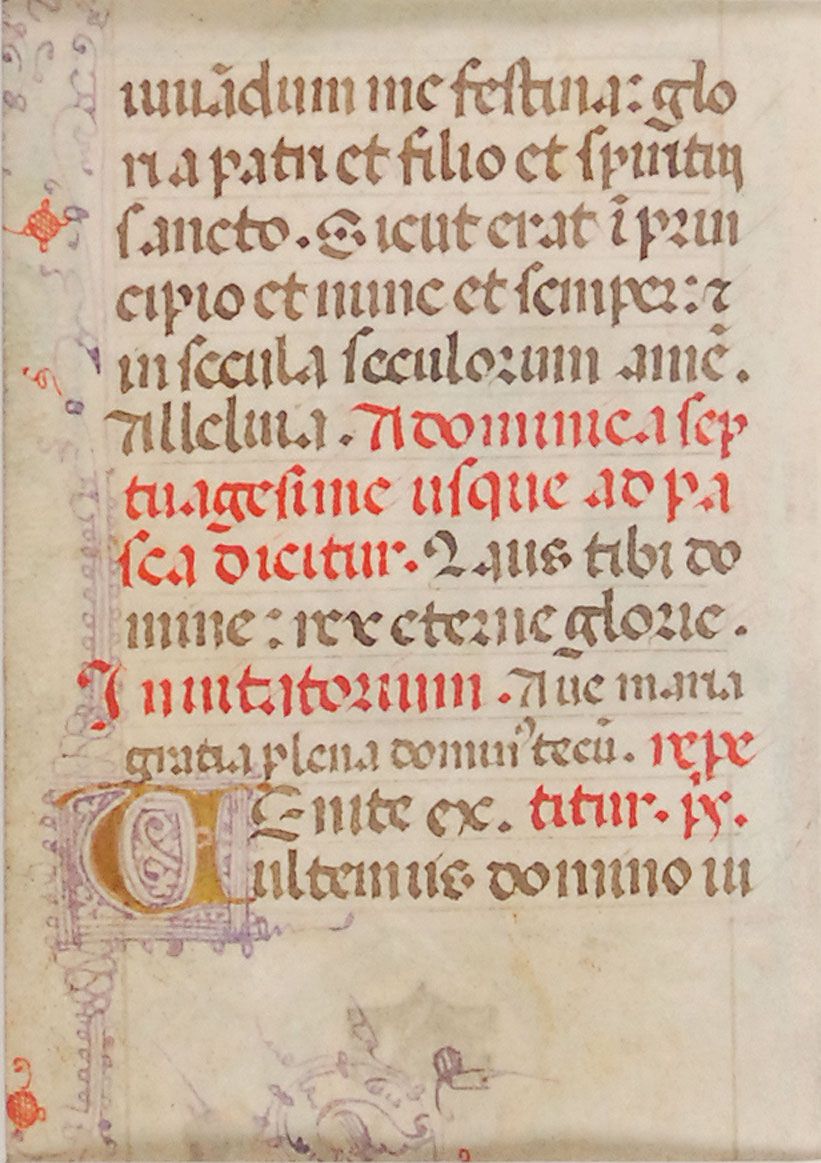 iuuādum me festina: glo
ria patri et filio et spiritui
sancto. Sicut erat ī prin
cipio et nunc et semper: ⁊
in secula seculorum amē.
Alleluia. A dominica sep
tuagesime usque ad pa
sca dicitur. Laus tibi do
mine: rex eterne glorie.
Inuitatorium. Aue maria
gratia plena dominꝰ tecū. repe
Uenite ex. titur. ps.
ultemus domino iu